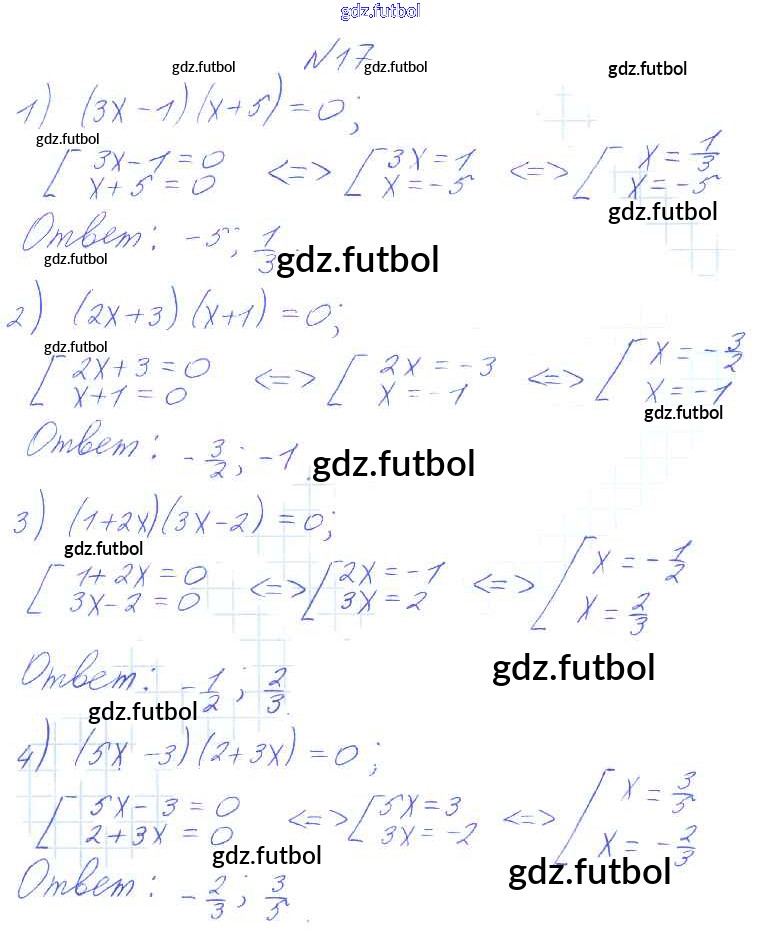 gdz.futbol
№17
gdz.futbol gdz.futbol gdz.futbol
1) (3x-1)(x+5)=0;
gdz.futbol
[ 3x-1=0 <=> [ 3x=1 <=> [ x=1/3
x+5=0 x=-5 x=-5
gdz.futbol
Ответ: -5; 1/3.
gdz.futbol gdz.futbol
2) (2x+3)(x+1)=0;
gdz.futbol
[ 2x+3=0 <=> [ 2x=-3 <=> [ x=-3/2
x+1=0 x=-1 x=-1
gdz.futbol
Ответ: -3/2; -1.
gdz.futbol
3) (1+2x)(3x-2)=0;
gdz.futbol
[ 1+2x=0 <=> [ 2x=-1 <=> [ x=-1/2
3x-2=0 3x=2 x=2/3
gdz.futbol
Ответ: -1/2; 2/3.
gdz.futbol
4) (5x-3)(2+3x)=0;
[ 5x-3=0 <=> [ 5x=3 <=> [ x=3/5
2+3x=0 3x=-2 x=-2/3
gdz.futbol gdz.futbol
Ответ: -2/3; 3/5.